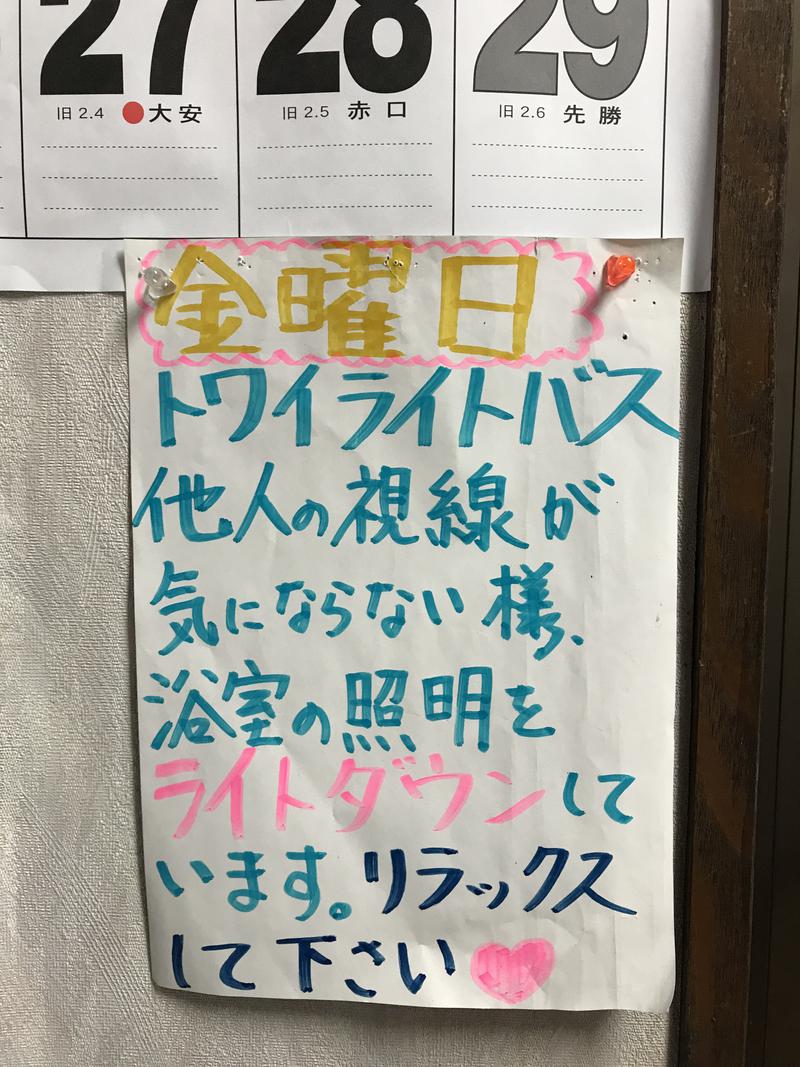 27 28 29
旧 2.4 大安 旧 2.5 赤口 旧 2.6 先勝
金曜日
トワイライトバス
他人の視線が
気にならない様、
浴室の照明を
ライトダウンして
います。リラックス
して下さい